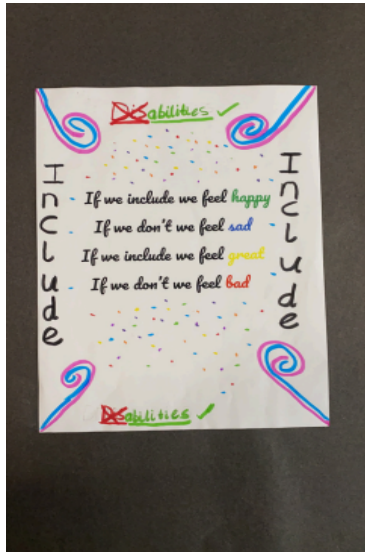 Disabilities ✓
Include
If we include we feel happy
If we don't we feel sad
If we include we feel great
If we don't we feel bad
Include
Disabilities ✓